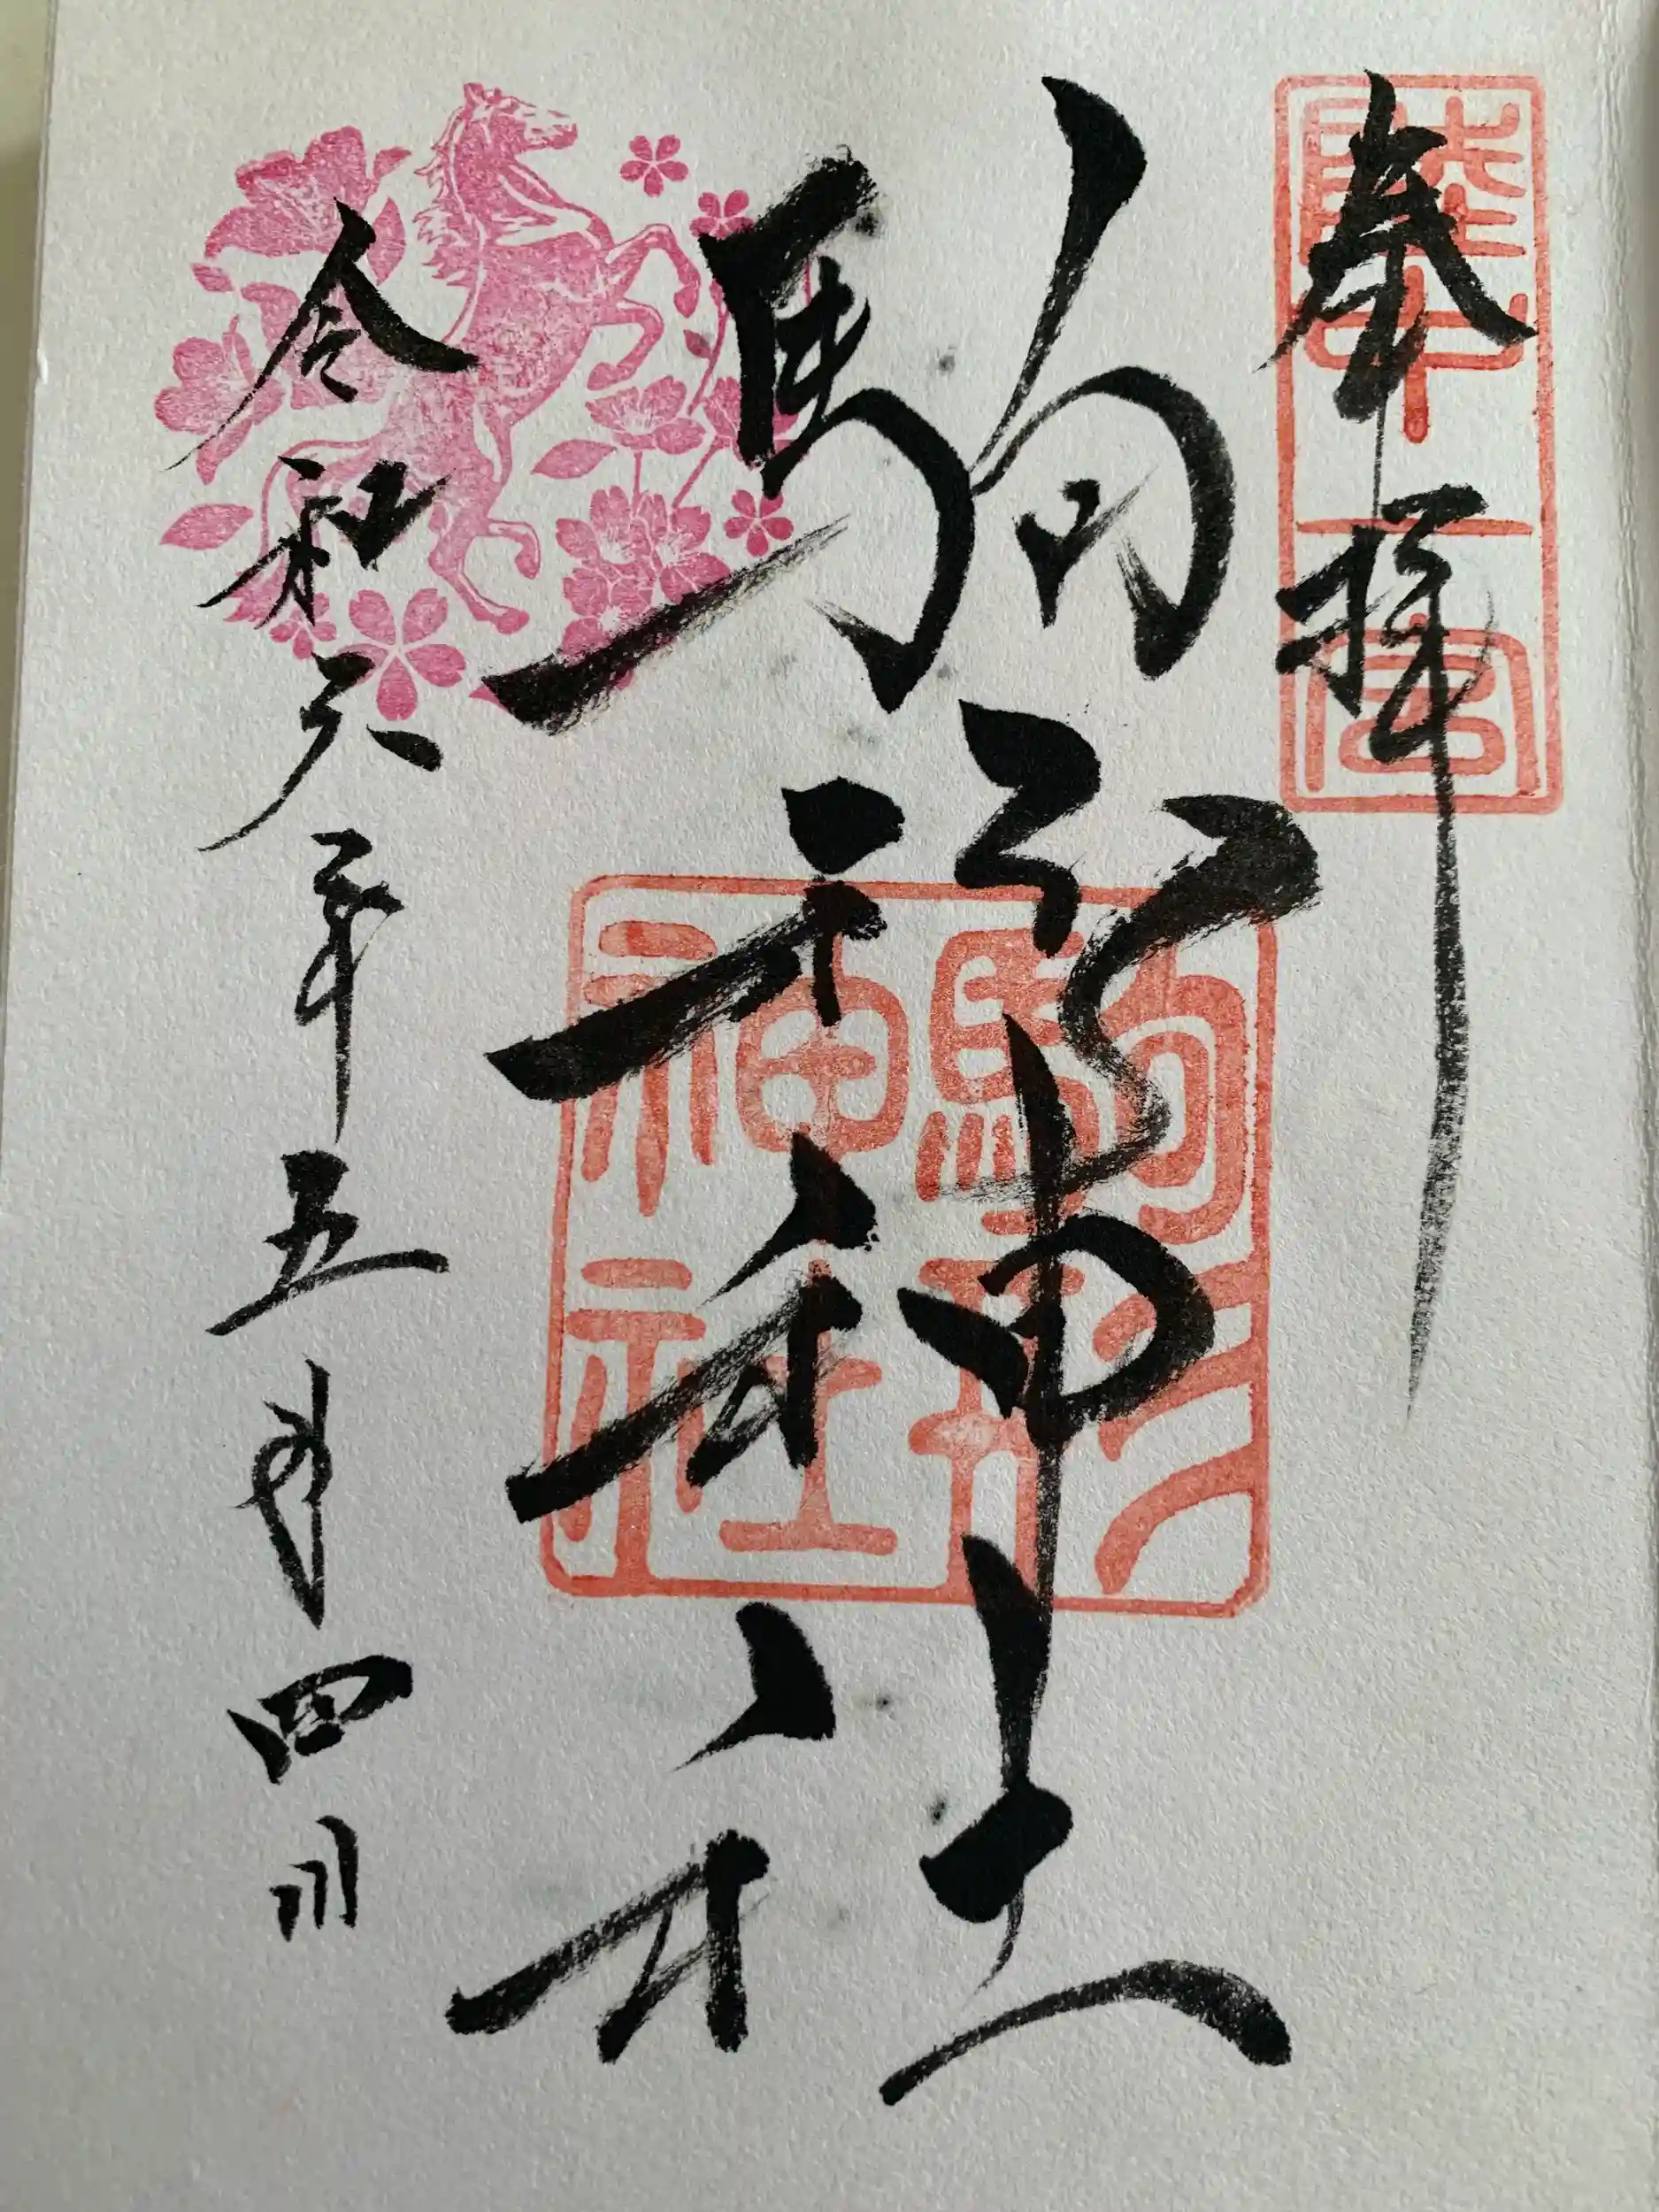 奉拝
陸中一宮
駒形神社
駒形
神社
令和六年五月四日